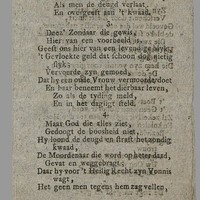 Als men de deugd verlaat,
En overgeeft aan 't kwaad.
3.
Deez' Zondaar die gewis,
Hier van een voorbeeld is,
Geeft ons hier van een levend
't Gevloekte geld dat schoon
dykt,
Vervoerde zyn gemoed,
Dat hy een oude Vrouw vermoord
En haar beneemt het dierbaar leven,
Zo als de tyding meld,
En in het dagligt steld.
4.
Maar God die alles ziet,
Gedoogt de boosheid niet,
Hy loond de deugd en straft het snood
kwaad,
De Moordenaar die word op
Gevat en weggebragt,
Daar hy voor 't Heilig Recht zyn Vonnis
wagt,
Het geen men tegens hem zag vellen,